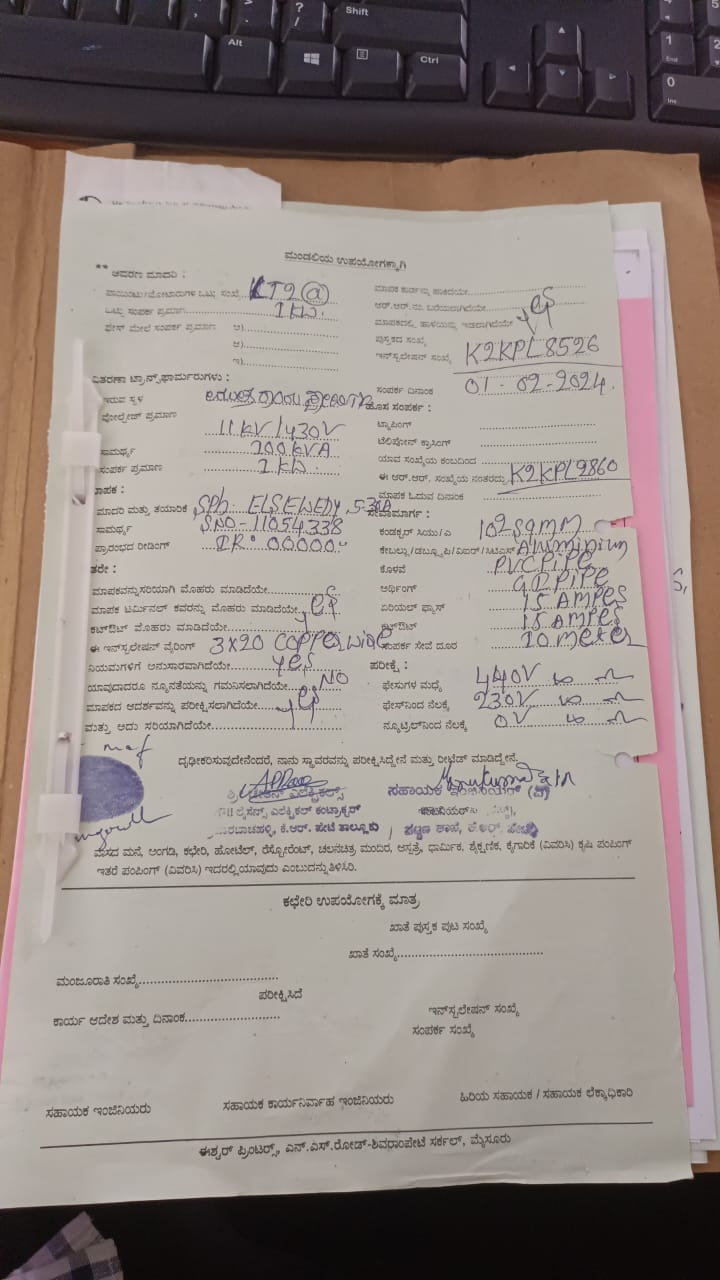 ಮಂಡಲಿಯ ಉಪಯೋಗಕ್ಕಾಗಿ
** ಆವರಣ ಮಾದರಿ :
ಪಾಯಿಂಟು/ಮೋಟಾರುಗಳ ಒಟ್ಟು ಸಂಖ್ಯೆ LT2 @
ಒಟ್ಟು ಸಂಪರ್ಕ ಪ್ರಮಾಣ 1 KW.
ಫೇಸ್ ಮೇಲೆ ಸಂಪರ್ಕ ಪ್ರಮಾಣ ಅ)
ಆ)
ಇ)
ಮಾಪಕ ಕಾರ್ಡನ್ನು ಹಾಕಿದೆಯೇ
ಆರ್.ಆರ್.ನಂ. ಬರೆಯಲಾಗಿದೆಯೇ
ಮಾಪಕದಲ್ಲಿ ಹಾಳೆಯನ್ನು ಇಡಲಾಗಿದೆಯೇ yes
ಪುಸ್ತಕದ ಸಂಖ್ಯೆ
ಇನ್‌ಸ್ಟಲೇಷನ್ ಸಂಖ್ಯೆ K2KPL8526
ಸಂಪರ್ಕ ದಿನಾಂಕ 01-02-2024.
ವಿತರಣಾ ಟ್ರಾನ್ಸ್‌ಫಾರ್ಮರುಗಳು :
ಇರುವ ಸ್ಥಳ
ವೋಲ್ಟೇಜ್ ಪ್ರಮಾಣ 11 KV/430V
ಸಾಮರ್ಥ್ಯ 100 KVA
ಸಂಪರ್ಕ ಪ್ರಮಾಣ 1 KW.
ಹೊಸ ಸಂಪರ್ಕ :
ಟ್ಯಾಪಿಂಗ್
ಟೆಲಿಫೋನ್ ಕ್ರಾಸಿಂಗ್
ಯಾವ ಸಂಖ್ಯೆಯ ಕಂಬದಿಂದ
ಈ ಆರ್.ಆರ್. ಸಂಖ್ಯೆಯ ನಂತರದ್ದು K2KPL9860
ಮಾಪಕ ಓದುವ ದಿನಾಂಕ
ಮಾಪಕ :
ಮಾದರಿ ಮತ್ತು ತಯಾರಿಕೆ ELSEWEDY 5-30A
ಸಾಮರ್ಥ್ಯ SNO-11054338
ಪ್ರಾರಂಭದ ರೀಡಿಂಗ್ IR: 00000.
ಸೇವಾಮಾರ್ಗ :
ಕಂಡಕ್ಟರ್ ಸಿಯು/ಎ 102 sqmm
ಕೇಬಲ್ಲು/ಡಬ್ಲ್ಯೂಪಿ/ಎಐರ್/ಸಿಟಿಎಸ್ Aluminium
ಕೊಳವೆ PVC PIPE
ಅರ್ಥಿಂಗ್ G.I PIPE
ಏರಿಯಲ್ ಫ್ಯೂಸ್ 15 AMPES
ಕಟ್‌ಔಟ್ 15 AMPES
ಸಂಪರ್ಕ ಸೇವೆ ದೂರ 10 meter
ಇತರೇ :
ಮಾಪಕವನ್ನು ಸರಿಯಾಗಿ ಮೊಹರು ಮಾಡಿದೆಯೇ
ಮಾಪಕ ಟರ್ಮಿನಲ್ ಕವರನ್ನು ಮೊಹರು ಮಾಡಿದೆಯೇ yes
ಕಟ್‌ಔಟ್ ಮೊಹರು ಮಾಡಿದೆಯೇ
ಈ ಇನ್‌ಸ್ಟಲೇಷನ್ ವೈರಿಂಗ್ 3X20 COPPER WIRE
ನಿಯಮಗಳಿಗೆ ಅನುಸಾರವಾಗಿದೆಯೇ yes
ಯಾವುದಾದರೂ ನ್ಯೂನತೆಯನ್ನು ಗಮನಿಸಲಾಗಿದೆಯೇ NO
ಮಾಪಕದ ಆದರ್ಶವನ್ನು ಪರೀಕ್ಷಿಸಲಾಗಿದೆಯೇ yes
ಮತ್ತು ಅದು ಸರಿಯಾಗಿದೆಯೇ
ಪರೀಕ್ಷೆ :
ಫೇಸುಗಳ ಮಧ್ಯೆ 440V
ಫೇಸ್‌ನಿಂದ ನೆಲಕ್ಕೆ 230V
ನ್ಯೂಟ್ರಲ್‌ನಿಂದ ನೆಲಕ್ಕೆ 0V
ದೃಢೀಕರಿಸುವುದೇನೆಂದರೆ, ನಾನು ಸ್ಥಾವರವನ್ನು ಪರೀಕ್ಷಿಸಿದ್ದೇನೆ ಮತ್ತು ರೀಟೆಡ್ ಮಾಡಿದ್ದೇನೆ.
ಎಲೆಕ್ಟ್ರಿಕಲ್ಸ್
ಲೈಸೆನ್ಸ್ ಎಲೆಕ್ಟ್ರಿಕಲ್ ಕಂಟ್ರಾಕ್ಟರ್
ಕೆ.ಆರ್. ಪೇಟೆ ತಾಲ್ಲೂಕು
ಸಹಾಯಕ ಇಂಜಿನಿಯರ್ (ವಿ)
ವಾಸದ ಮನೆ, ಅಂಗಡಿ, ಕಛೇರಿ, ಹೋಟೆಲ್, ರೆಸ್ಟೋರೆಂಟ್, ಚಲನಚಿತ್ರ ಮಂದಿರ, ಆಸ್ಪತ್ರೆ, ಧಾರ್ಮಿಕ, ಶೈಕ್ಷಣಿಕ, ಕೈಗಾರಿಕೆ (ವಿವರಿಸಿ) ಕೃಷಿ ಪಂಪಿಂಗ್
ಇತರೆ ಪಂಪಿಂಗ್ (ವಿವರಿಸಿ) ಇದರಲ್ಲಿ ಯಾವುದು ಎಂಬುದನ್ನು ತಿಳಿಸಿರಿ.
ಕಛೇರಿ ಉಪಯೋಗಕ್ಕೆ ಮಾತ್ರ
ಖಾತೆ ಪುಸ್ತಕ ಪುಟ ಸಂಖ್ಯೆ
ಖಾತೆ ಸಂಖ್ಯೆ
ಮಂಜೂರಾತಿ ಸಂಖ್ಯೆ
ಪರೀಕ್ಷಿಸಿದೆ
ಕಾರ್ಯ ಆದೇಶ ಮತ್ತು ದಿನಾಂಕ
ಇನ್‌ಸ್ಟಲೇಷನ್ ಸಂಖ್ಯೆ
ಸಂಪರ್ಕ ಸಂಖ್ಯೆ
ಸಹಾಯಕ ಇಂಜಿನಿಯರು
ಸಹಾಯಕ ಕಾರ್ಯನಿರ್ವಾಹ ಇಂಜಿನಿಯರು
ಹಿರಿಯ ಸಹಾಯಕ / ಸಹಾಯಕ ಲೆಕ್ಕಾಧಿಕಾರಿ
ಈಶ್ವರ್ ಪ್ರಿಂಟರ್‍ಸ್, ಎನ್.ಎಸ್.ರೋಡ್-ಶಿವರಾಂಪೇಟೆ ಸರ್ಕಲ್, ಮೈಸೂರು
Shift
Alt
Ctrl
End
Ins